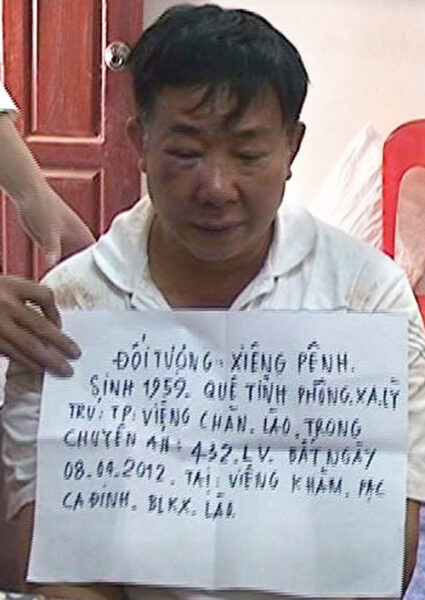 ĐỐI TƯỢNG: XIÊNG PÊNH.
SINH 1959. QUÊ TỈNH PHÔNG.XA.LỲ
TRÚ: TP: VIÊNG CHĂN. LÀO. TRONG
CHUYÊN ÁN: 432.LV. BẮT NGÀY
08.04.2012. TẠI: VIÊNG KHĂM. PẠC
CA ĐINH. BLKX. LÀO.